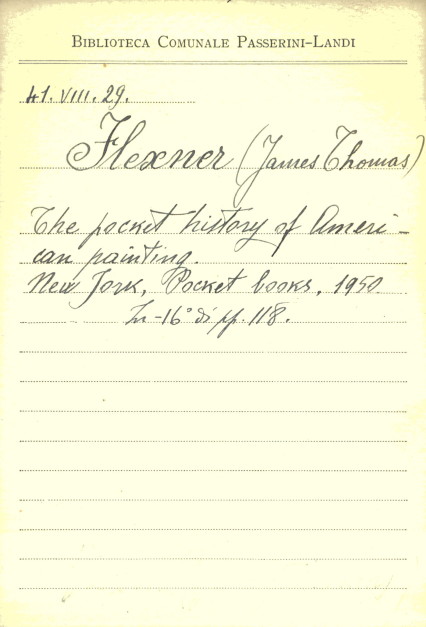 BIBLIOTECA COMUNALE PASSERINI-LANDI
41. VIII. 29.
Flexner (James Thomas)
The pocket history of Ameri-
can painting.
New York, Pocket books, 1950
In-16° di pp. 118.